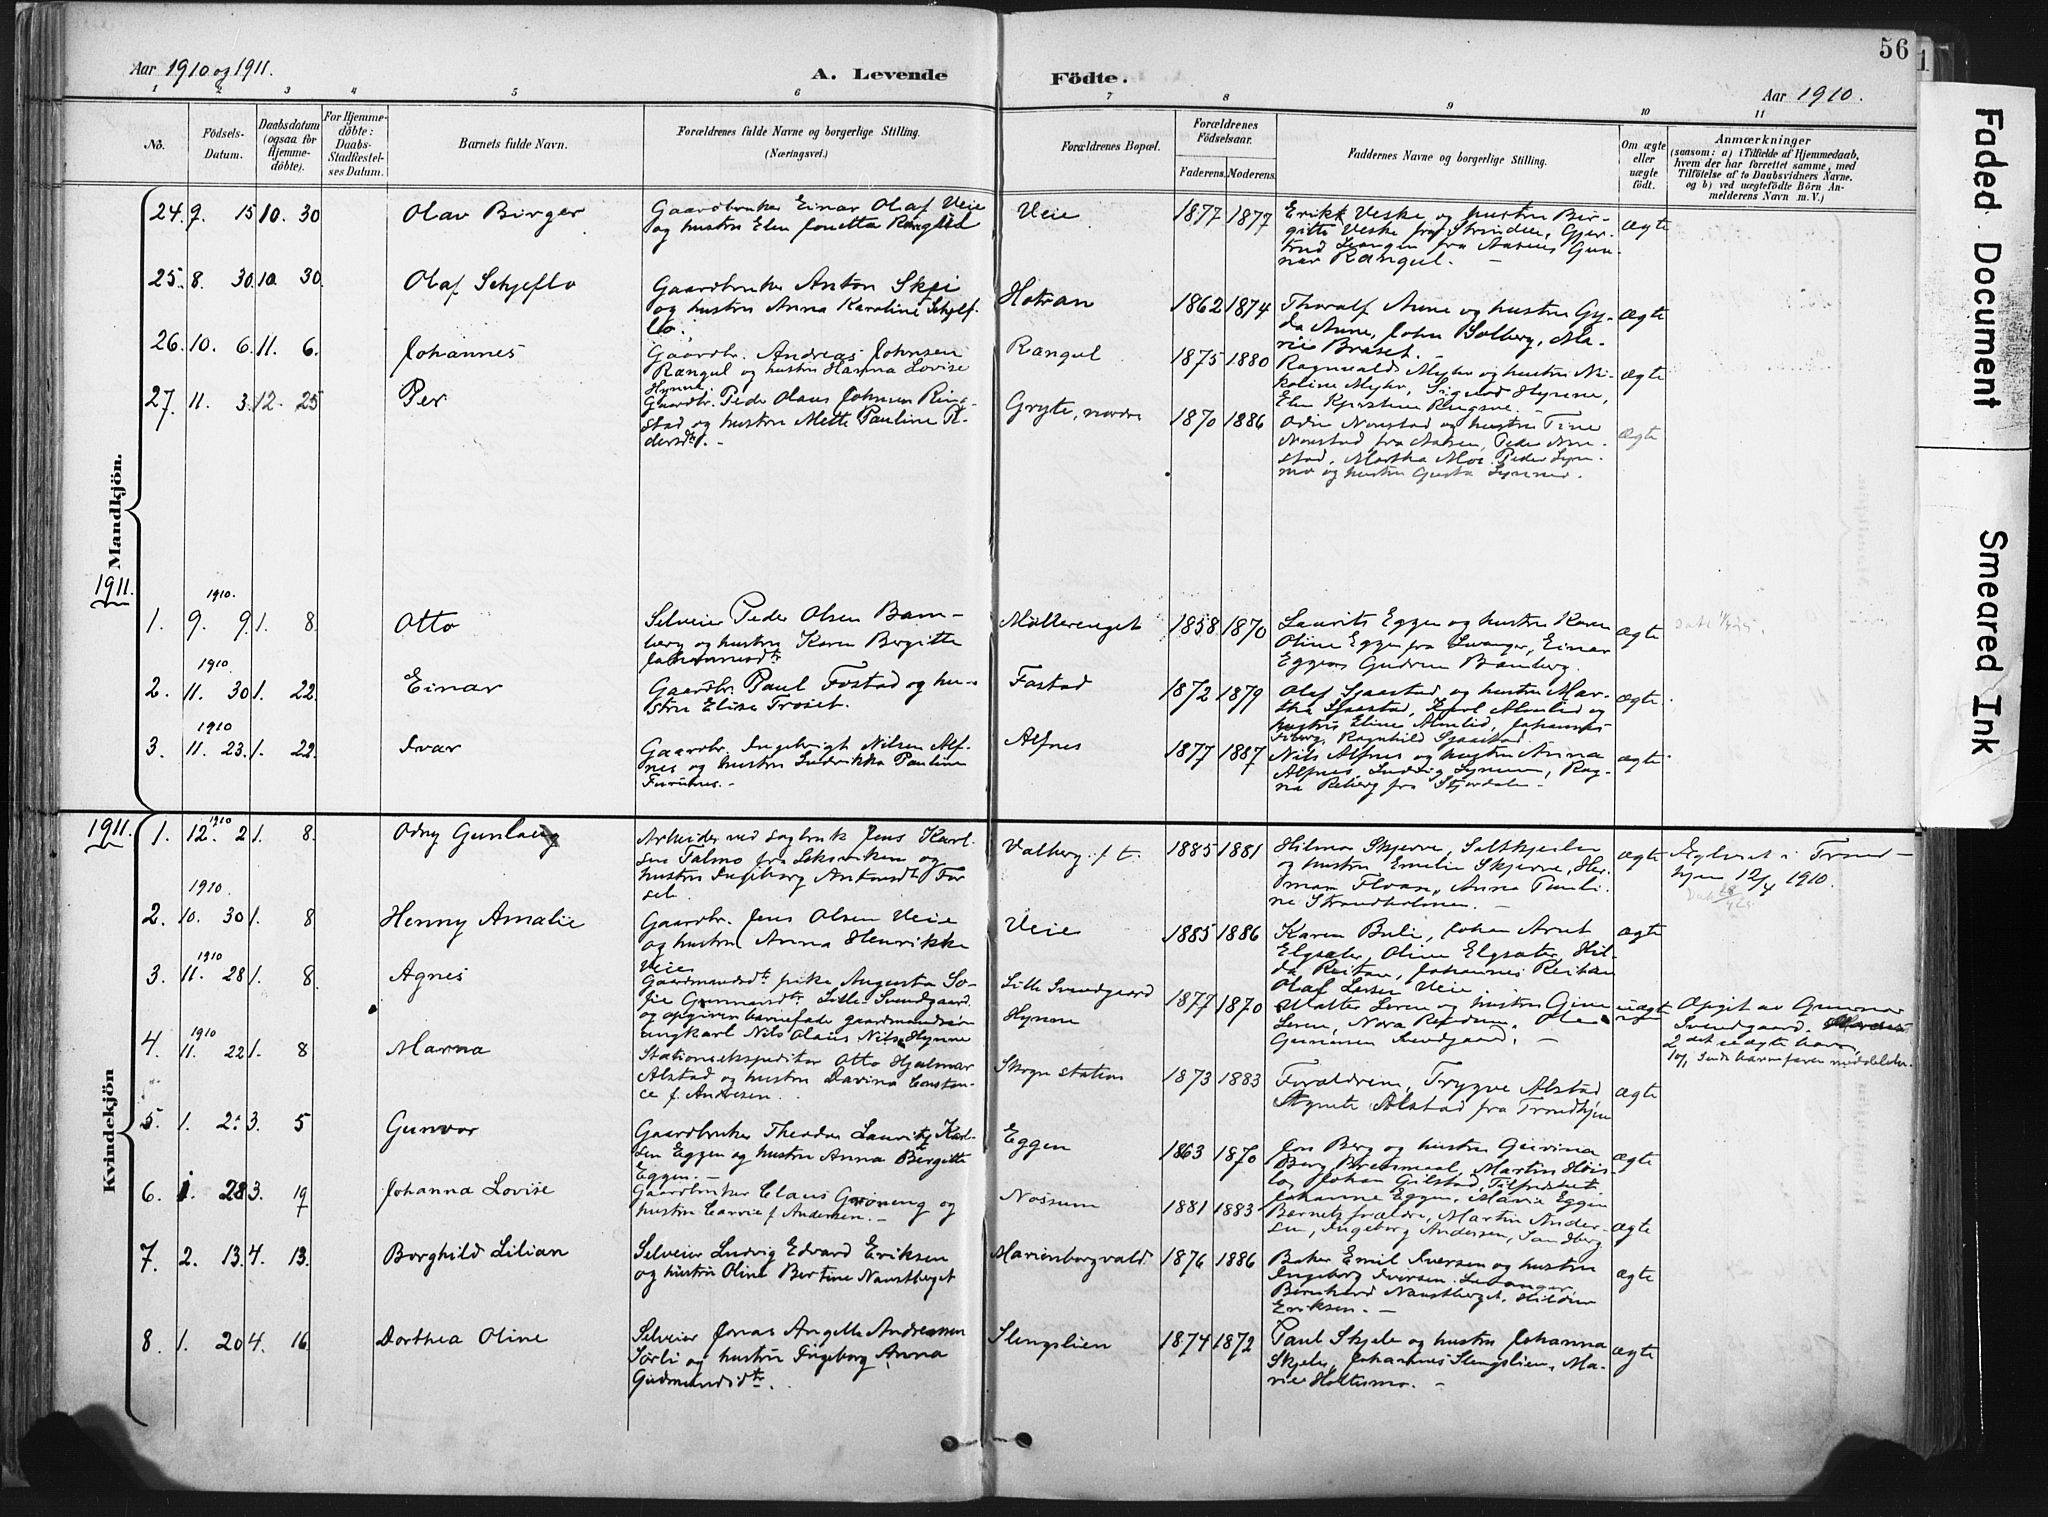 56
Aar 1910 og 1911.
A. Levende
Födte.
Aar 1910.
1 2 3 4 5 6 7 8 9 10 11
No.
Födsels-
Datum.
Daabsdatum
(ogsaa for
Hjemme-
döbte).
For Hjemme-
döbte:
Daabs-
Stadfæstel-
ses Datum.
Barnets fulde Navn.
Forældrenes fulde Navne og borgerlige Stilling.
(Næringsvei.)
Forældrenes Bopæl.
Forældrenes
Födselsaar.
Faderens. Moderens.
Faddernes Navne og borgerlige Stilling.
Om ægte
eller
uægte
födt.
Anmærkninger
(saasom: a) i Tilfælde af Hjemmedaab,
hvem der har forrettet samme, med
Tilföielse af to Daabsvidners Navne.
og b) ved uægtefödte Börn An-
melderens Navn m. V.)
Mandkjön.
24. 9. 15 10. 30
Olav Birger
Gaardbruker Einar Olaf Veie
og hustru Elen Jonetta
Veie
1877 1877
Erik Veske og hustru Bir-
gitte Veske fra Strinden,
fra Aasen, Gun-
nar Rangul.
ægte
25. 8. 30 10. 30.
Olaf Schjeflo
Gaardbruker Anton Skei
og hustru Anna Karoline Schjef-
lo.
Hotran
1862 1874
Thoralf Aune og hustru Gy-
da Aune, John Solberg, Ma-
rie Braset.
ægte
26. 10. 6. 11. 6.
Johannes
Gaardbr. Andreas Johnsen
Rangul og hustru Hanna Lovise
Hynne.
Rangul
1875 1880
Ragnvald Myhr og hustru Ni-
koline Myhr, Sigurd Hynne,
ægte
27. 11. 3. 12. 25
Per
Gaardbr. Peder Olaus Johnsen Rin-
stad og hustru Mette Pauline P.
dersdt. -
Gryte, nordre
1870 1886
Odin Nonstad og hustru Tine
Nonstad fra Aasen, Peder
stad, Martha Moe. Peder
og hustru
ægte
1911.
1910.
1. 9. 9. 1. 8.
Otto
Selveier Peder Olsen Bam-
berg og hustru Karen Bergitte
Johannesdt.
Möllerenget
1858 1870
Laurits Eggen og hustru Karen
Oline Eggen fra Levanger, Einar
Eggen, Gudrun Bamberg.
ægte
1910
2. 11. 30 1. 22.
Einar
Gaardbr. Paul Fostad og hu-
stru Elise Troset.
Fostad
1872 1879
Olaf Sjaastad og hustru Mar-
tha Sjaastad, Karl Almlid og
hustru Eline Almlid, Johannes
Ragnhild Sjaastad.
ægte.
1910
3. 11. 23. 1. 22
Ivar
Gaardbr. Ingebrigt Nilsen Alf-
nes og hustru Fredrikka Pauline
Furunes. -
Alfnes
1877 1887
Nils Alfnes og hustru Anna
Alfnes, Ludvig Rag-
na fra Stjordalen.
ægte
Kvindekjön
1911.
1910
1. 12. 2 1. 8.
Odny Gunlaug
Arbeider ved sagbruk Jens Karl-
sen Talmo fra Leksviken og
hustru Ingeborg Antonsdt. For-
sel.
Valberg f. t.
1885 1881
Hilmar Skjerve,
og hustru Emelie Skjerve, Her-
man Floan, Anna Pauli-
ne Strandholmen.
ægte
i Trond-
hjem 12/4 1910.
1910.
2. 10. 30 1. 8
Henny Amalie
Gaardbr. Jens Olsen Veie
og hustru Anna Henrikke
Veie
Veie
1885 1886
Karen Buli, Johan Arnt
Elgsæter, Oline Elgsæter, Hil-
da Reitan, Johannes Reitan
Olaf Larsen Veie
ægte
1910
3. 11. 28 1. 8
Agnes
Gaardmandsdt. pike Augusta So-
fie Gunnarsdt. Lille Svendgaard
og opgiven barnefader gaardmandssön
ungkarl Nils Olaus Nilsen Hynne
Lille Svendgaard
Hynne
1877 1870
Walter Leren og hustru Gine
Leren, Nora
Gunnarsen Svendgaard,
uægte
Opgit av Gunnar
Svendgaard.
2 det uægte barn,
1910
4. 11. 22 1. 8
Marna
Stationsekspeditör Otto Hjalmar
Alstad og hustru Davina Constan-
ce f. Andresen.
Skogn station
1873 1883
Forældrene, Trygve Alstad
Agnete Alstad fra Trondhjem
ægte
5. 1. 2. 3. 5
Gunvor
Gaardbruker Theodor Lauritz Karl-
sen Eggen og hustru Anna Bergitte
Eggen. -
Eggen
1863 1870
Jon Berg og hustru Gurina
Berg Martin Höis-
lo, Johan Gilstad,
Johanne Eggen, Marie Eggen
ægte
6. 1. 28 3. 19
Johanna Lovise
Gaardbruker Claus Gröneng og
hustru Carrie f. Andersen. -
Nossum
1881 1883
Barnets forældre, Martin Ander-
sen, Ingeborg Andersen, Sandberg.
ægte
7. 2. 13. 4. 13.
Borghild Lilian
Selveier Ludvig Edvard Eriksen
og hustru Oline Bertine Naustberget
Marienborgvald
1876 1886
Baker Emil Iversen og hustru
Ingeborg Iversen. Levanger,
Bernhard Naustberget, Hildur
Eriksen. -
ægte
8. 1. 20 4. 16
Dorthea Oline
Selveier Jonas Angell Andreassen
Sörli og hustru Ingeborg Anna
Gudmundsdt.
Slengslien
1874 1872
Paul Skjele og hustru Johanna
Skjele, Johannes Slengslien, Ma-
rie Holtesmo. -
ægte
Faded Document
Smeared Ink